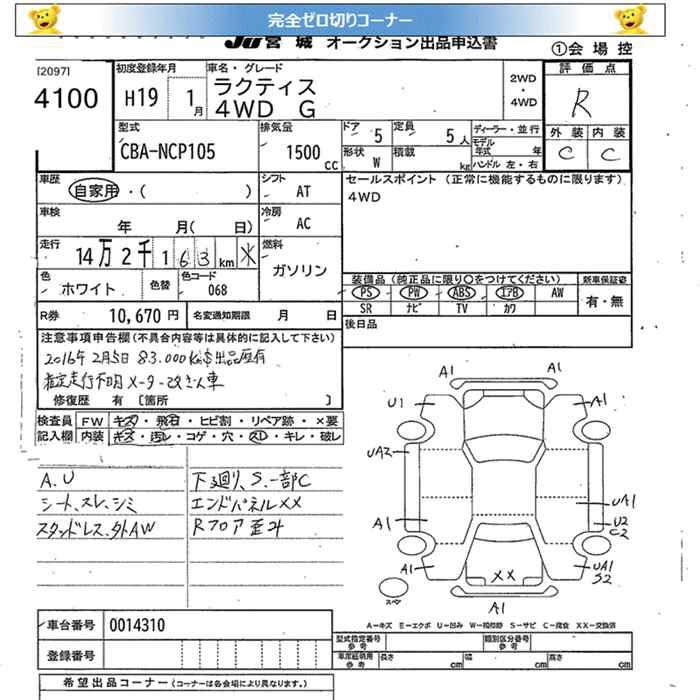 完全ゼロ切りコーナー
JU 宮城 オークション出品申込書
①会場控
[2097]
4100
初度登録年月
H19 1月
車名・グレード
ラクティス
4WD G
2WD
・
4WD
評価点
R
外装 内装
C C
型式
CBA-NCP105
排気量
1500 cc
ドア 5
定員 5人
ディーラー・並行
モデル年式 年
形状 W
積載 kg
ハンドル 左・右
車歴
自家用・( )
シフト
AT
セールスポイント (正常に機能するものに限ります)
4WD
車検
年 月( 日)
冷房
AC
走行
14万2千163km ※
燃料
ガソリン
色
ホワイト
色替
色コード
068
装備品(純正品に限り○をつけてください)
新車保証書
PS PW ABS エアB AW
有・無
SR ナビ TV カワ
R券 10,670円
名変通知期限 月 日
後日品
注意事項申告欄(不具合内容等は具体的に記入して下さい)
2016年2月5日 83,000km

走行不明 メーター改ざん車
修復歴 有 [箇所 ]
検査員記入欄
FW キズ・飛石・ヒビ割・リペア跡・×要
内装 キズ・汚レ・コゲ・穴・スレ・キレ・破レ
A、U
シート、スレ、シミ
スタッドレス、外AW
下廻り、S、一部C
エンドパネルXX
Rフロア歪み
A1
A1
U1
A1
UA2
A1
UA1
U2
C2
A1
UA1
S2
XX
A1
スペア
A―キズ E―エクボ U―凹み W―補修跡 S―サビ C―腐食 XX―交換済
車台番号 0014310
登録番号
型式指定番号 参考
類別区分番号 参考
車庫証明用 参考
長さ cm
幅 cm
高さ cm
希望出品コーナー(コーナーは各会場により異なります。)